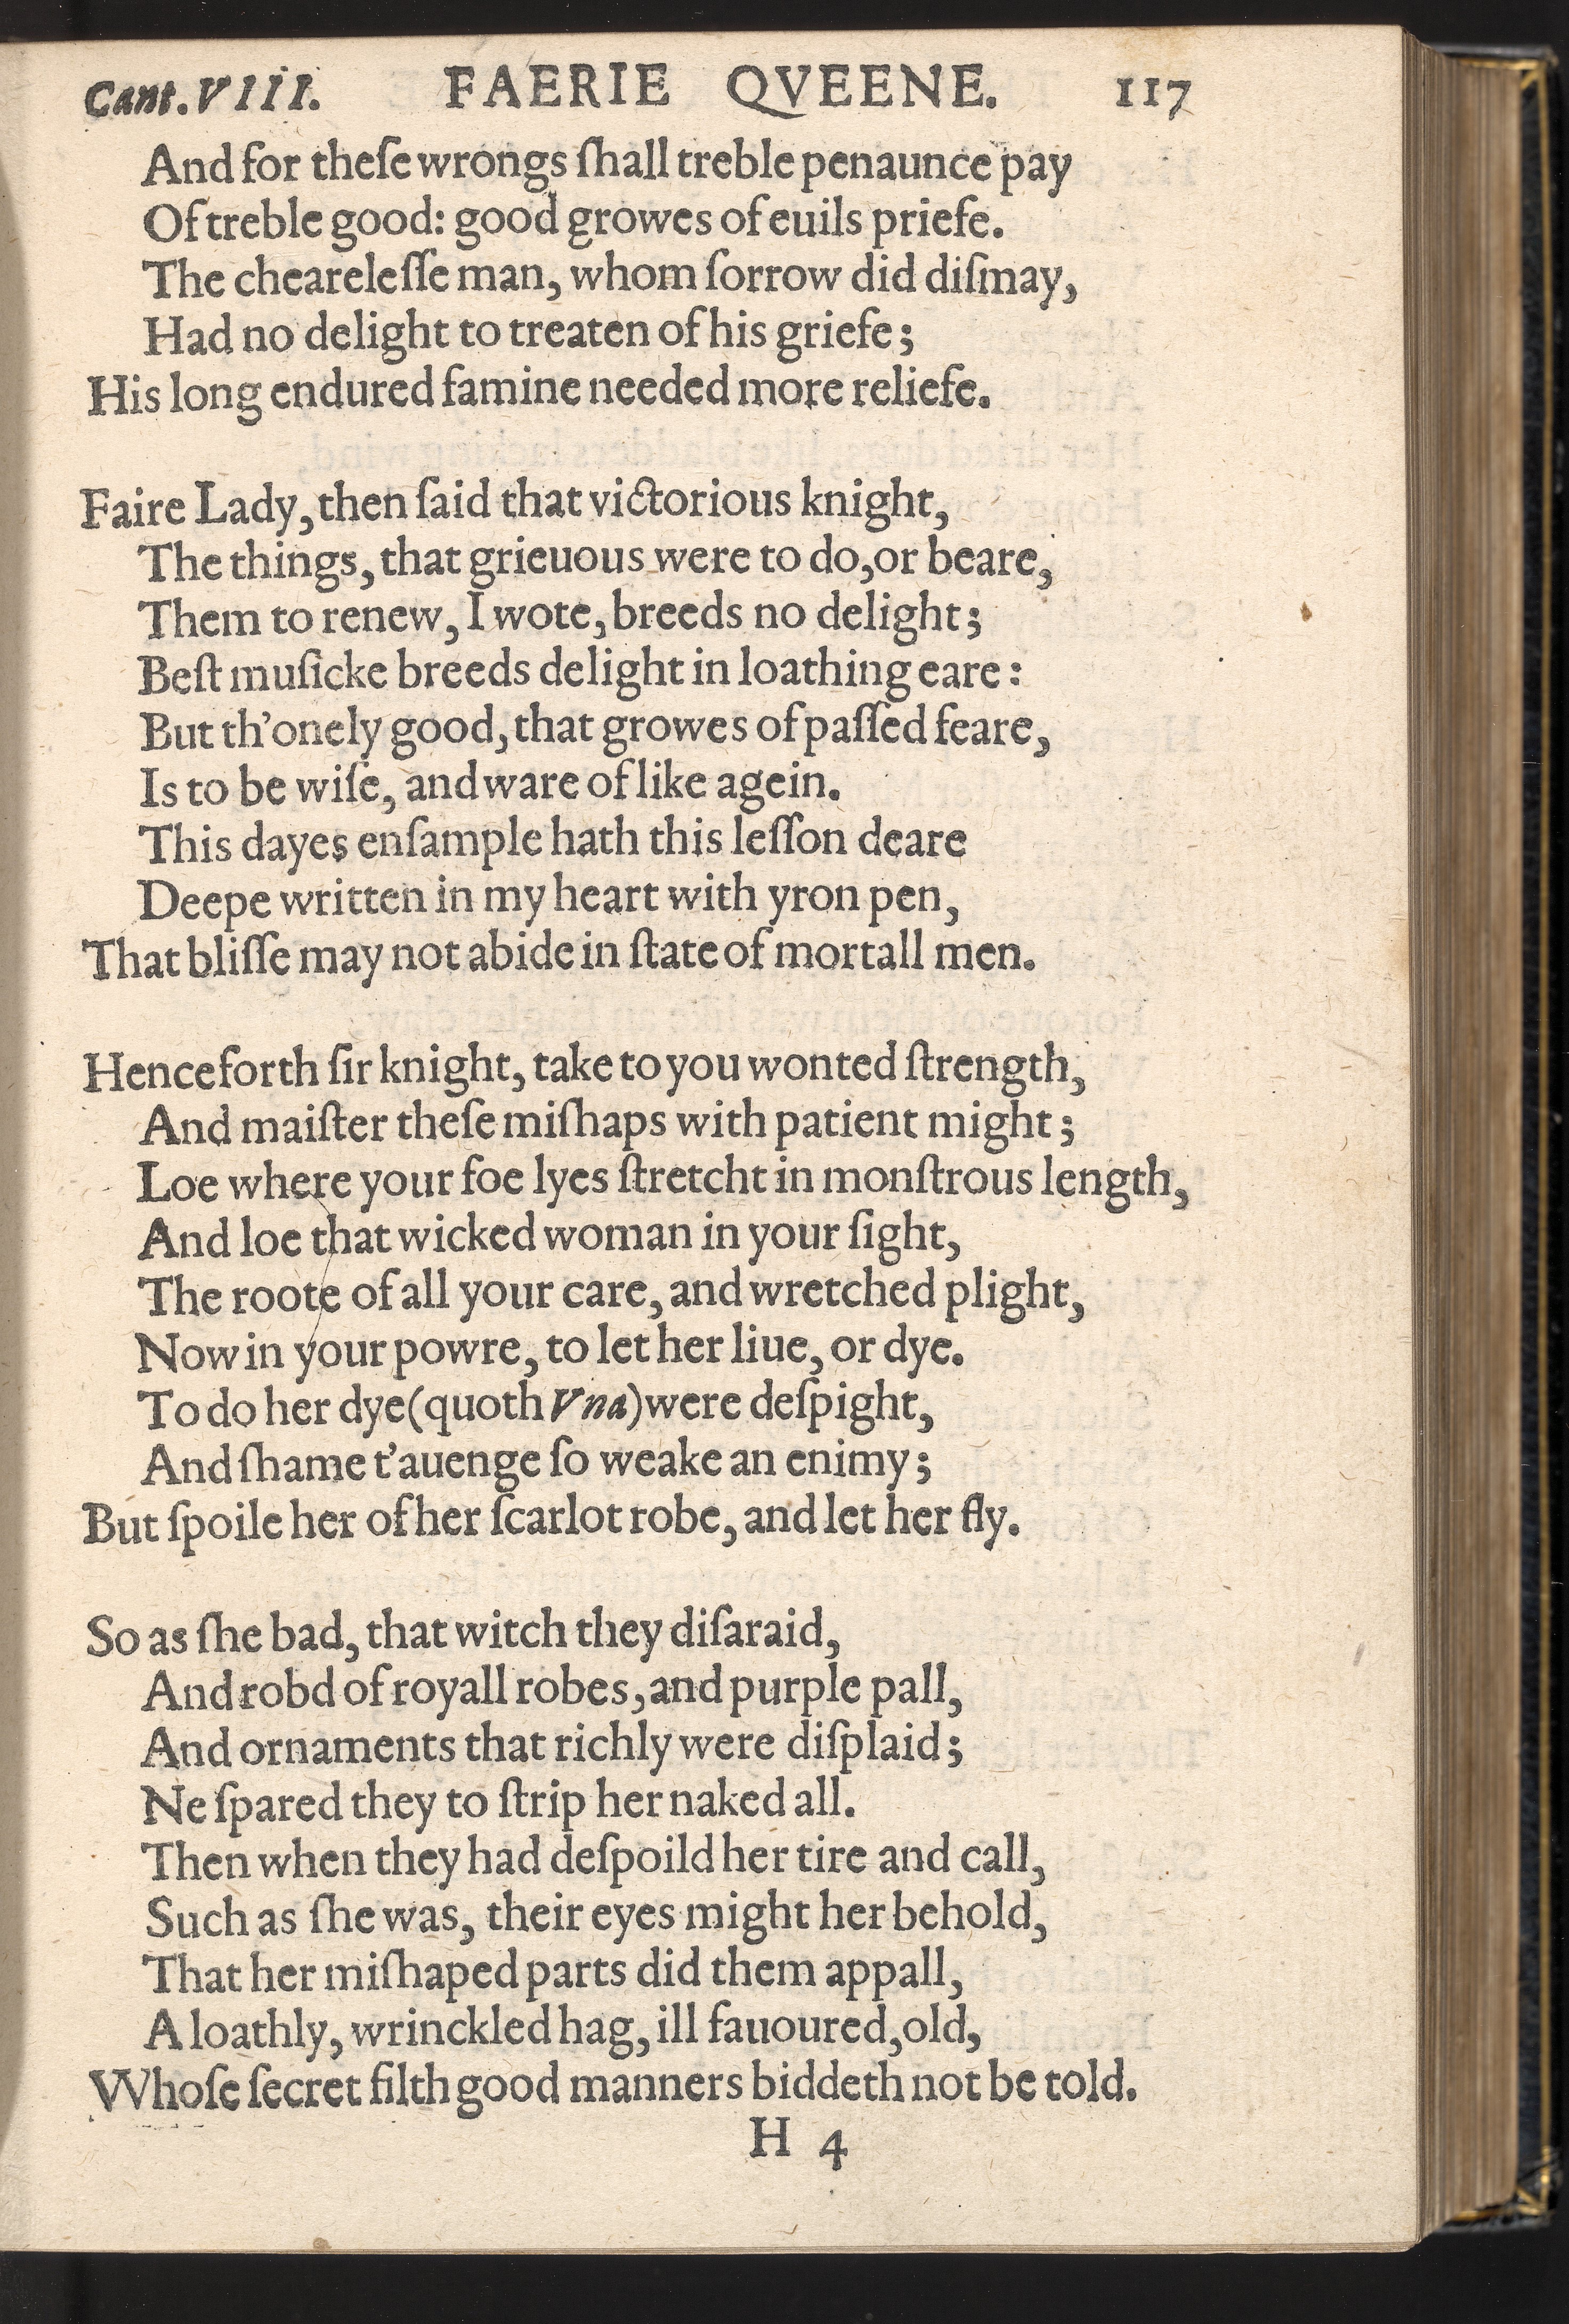 Cant. VIII. FAERIE QVEENE. 117
And for theſe wrongs ſhall treble penaunce pay
Of treble good: good growes of euils priefe.
The cheareleſſe man, whom ſorrow did diſmay,
Had no delight to treaten of his griefe;
His long endured famine needed more reliefe.
Faire Lady, then ſaid that victorious knight,
The things, that grieuous were to do, or beare,
Them to renew, I wote, breeds no delight;
Beſt muſicke breeds delight in loathing eare:
But th'onely good, that growes of paſſed feare,
Is to be wiſe, and ware of like agein.
This dayes enſample hath this leſſon deare
Deepe written in my heart with yron pen,
That bliſſe may not abide in ſtate of mortall men.
Henceforth ſir knight, take to you wonted ſtrength,
And maiſter theſe miſhaps with patient might;
Loe where your foe lyes ſtretcht in monſtrous length,
And loe that wicked woman in your ſight,
The roote of all your care, and wretched plight,
Now in your powre, to let her liue, or dye.
To do her dye (quoth Vna) were deſpight,
And ſhame t'auenge ſo weake an enimy;
But ſpoile her of her ſcarlot robe, and let her fly.
So as ſhe bad, that witch they diſaraid,
And robd of royall robes, and purple pall,
And ornaments that richly were diſplaid;
Ne ſpared they to ſtrip her naked all.
Then when they had deſpoild her tire and call,
Such as ſhe was, their eyes might her behold,
That her miſhaped parts did them appall,
A loathly, wrinckled hag, ill fauoured, old,
Whoſe ſecret filth good manners biddeth not be told.
H 4